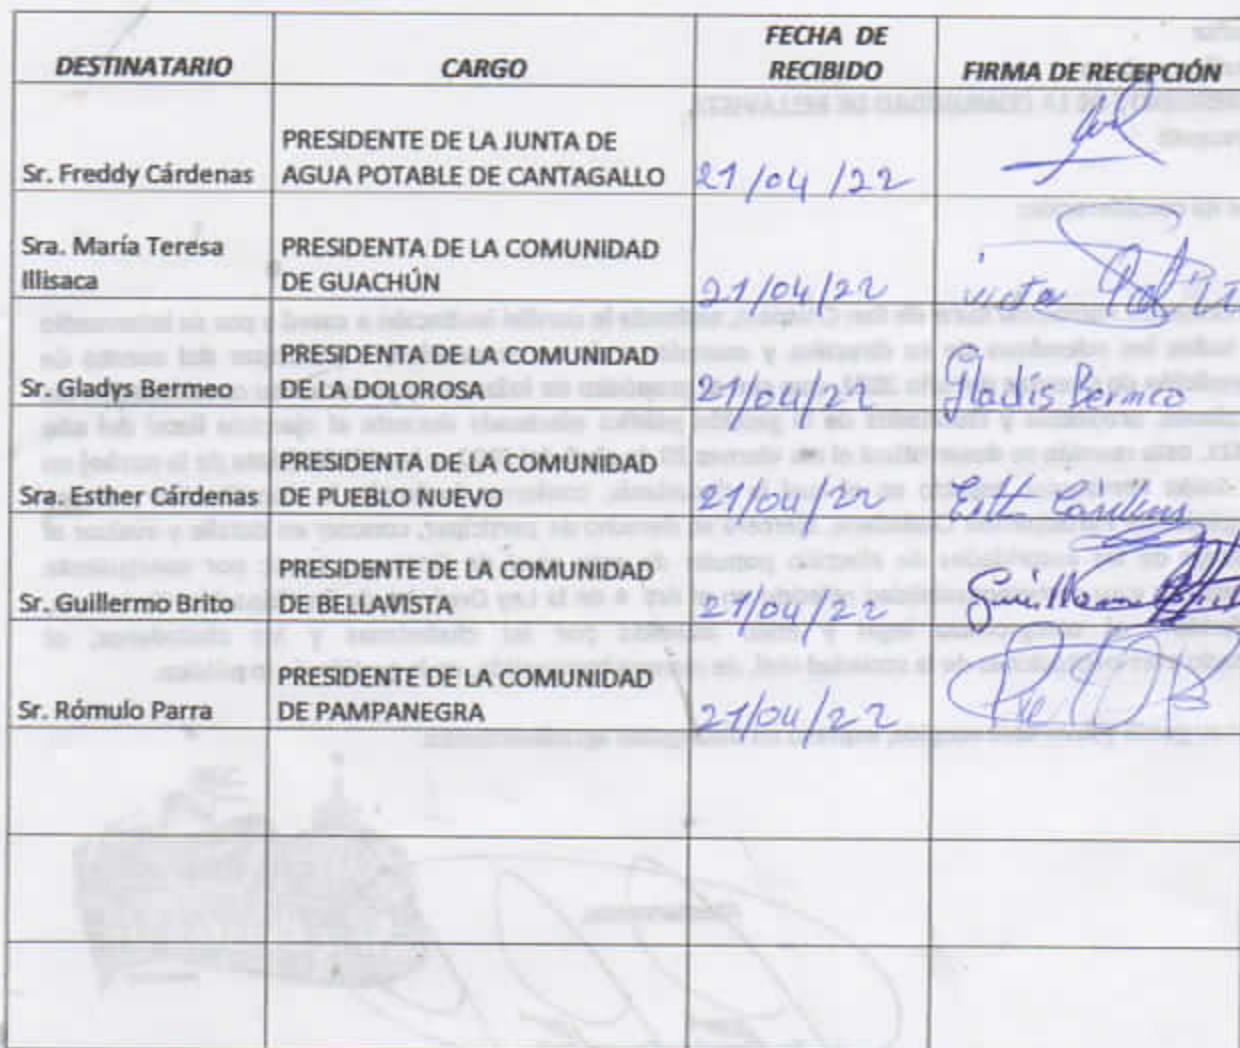 DESTINATARIO CARGO FECHA DE RECIBIDO FIRMA DE RECEPCIÓN
Sr. Freddy Cárdenas PRESIDENTE DE LA JUNTA DE AGUA POTABLE DE CANTAGALLO 21/04/22
Sra. María Teresa Illisaca PRESIDENTA DE LA COMUNIDAD DE GUACHÚN 21/04/22 victor
Sr. Gladys Bermeo PRESIDENTA DE LA COMUNIDAD DE LA DOLOROSA 21/04/22 Gladis Bermeo
Sra. Esther Cárdenas PRESIDENTA DE LA COMUNIDAD DE PUEBLO NUEVO 21/04/22 Esth Cárdenas
Sr. Guillermo Brito PRESIDENTE DE LA COMUNIDAD DE BELLAVISTA 21/04/22 Guillermo
Sr. Rómulo Parra PRESIDENTE DE LA COMUNIDAD DE PAMPANEGRA 21/04/22